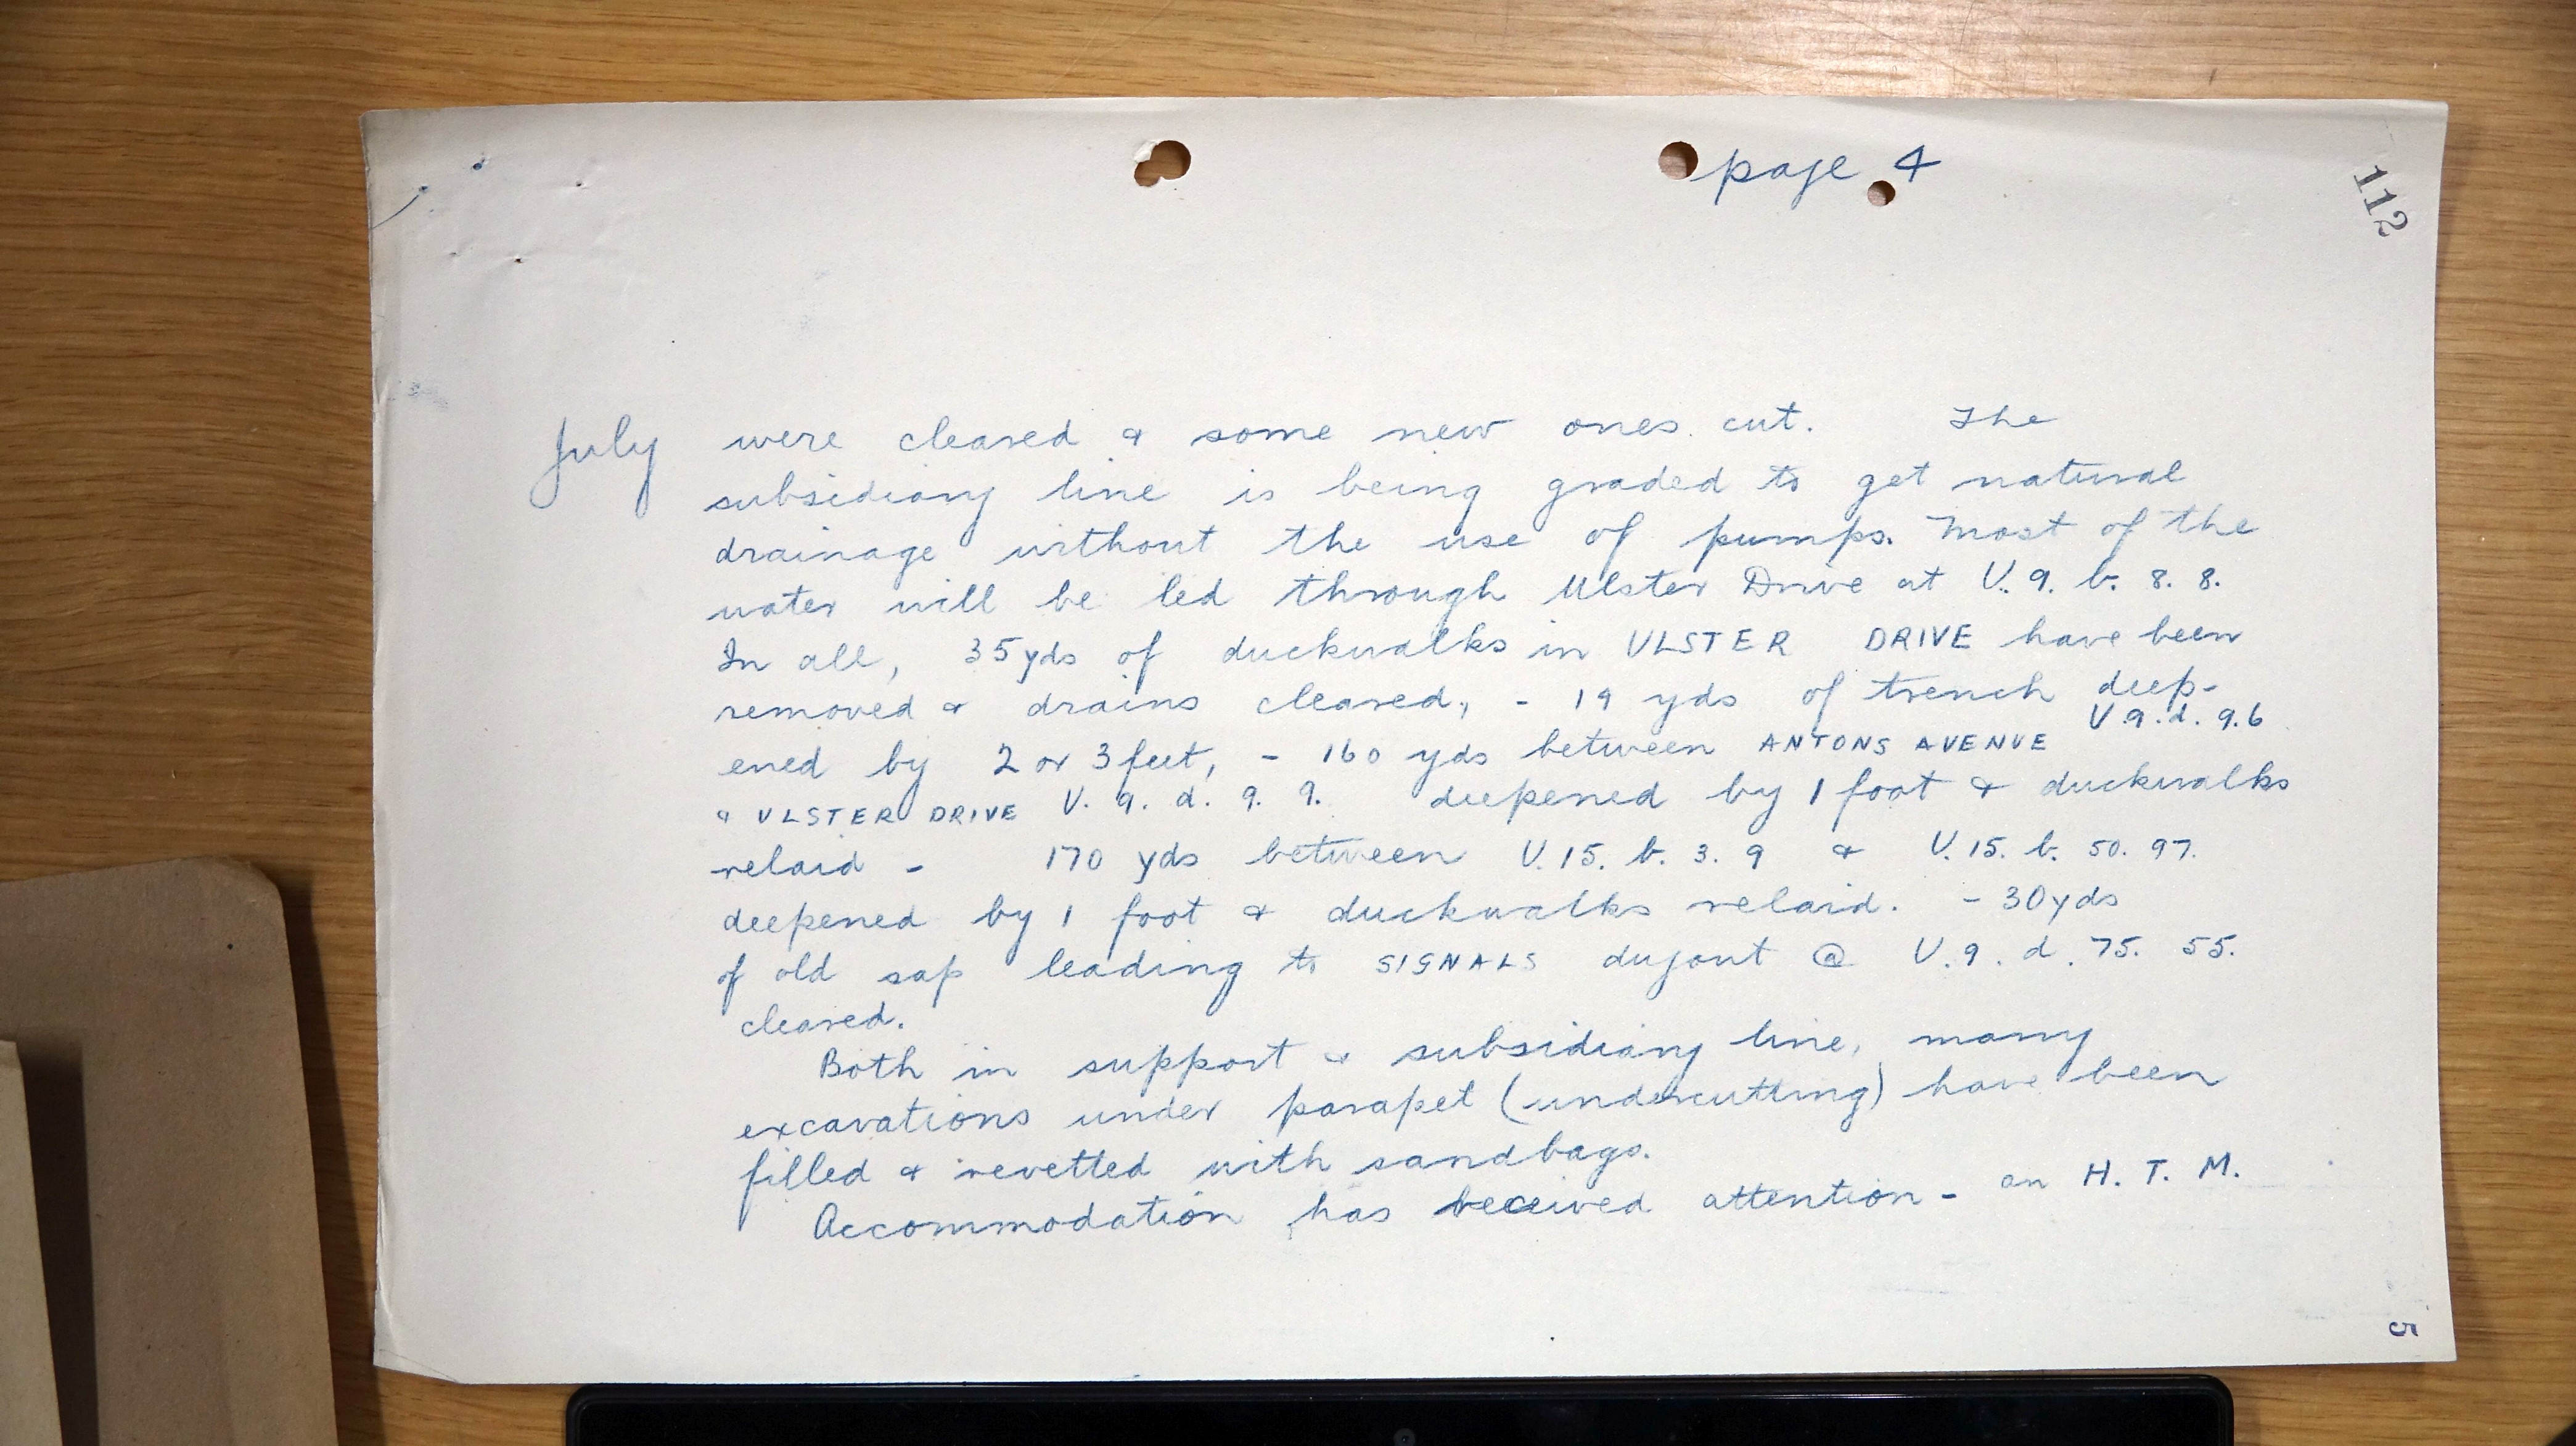 page 4
112
July were cleared & some new ones cut. The
subsidiary line is being graded to get natural
drainage without the use of pumps. Most of the
water will be led through Ulster Drive at V. 9. b. 8. 8.
In all, 35 yds of duckwalks in ULSTER DRIVE have been
removed & drains cleared, - 19 yds of trench deep-
ened by 2 or 3 feet, - 160 yds between ANTONS AVENUE V.9.d. 9.6
& ULSTER DRIVE V. 9. d. 9. 9. deepened by 1 foot & duckwalks
relaid - 170 yds between V. 15. b. 3. 9 & V. 15. b. 50. 97.
deepened by 1 foot & duckwalks relaid. - 30 yds
of old sap leading to SIGNALS dugout @ V. 9. d. 75. 55.
cleared.
Both in support & subsidiary line, many
excavations under parapet (undercutting) have been
filled & revetted with sandbags.
Accommodation has received attention - an H. T. M.
5